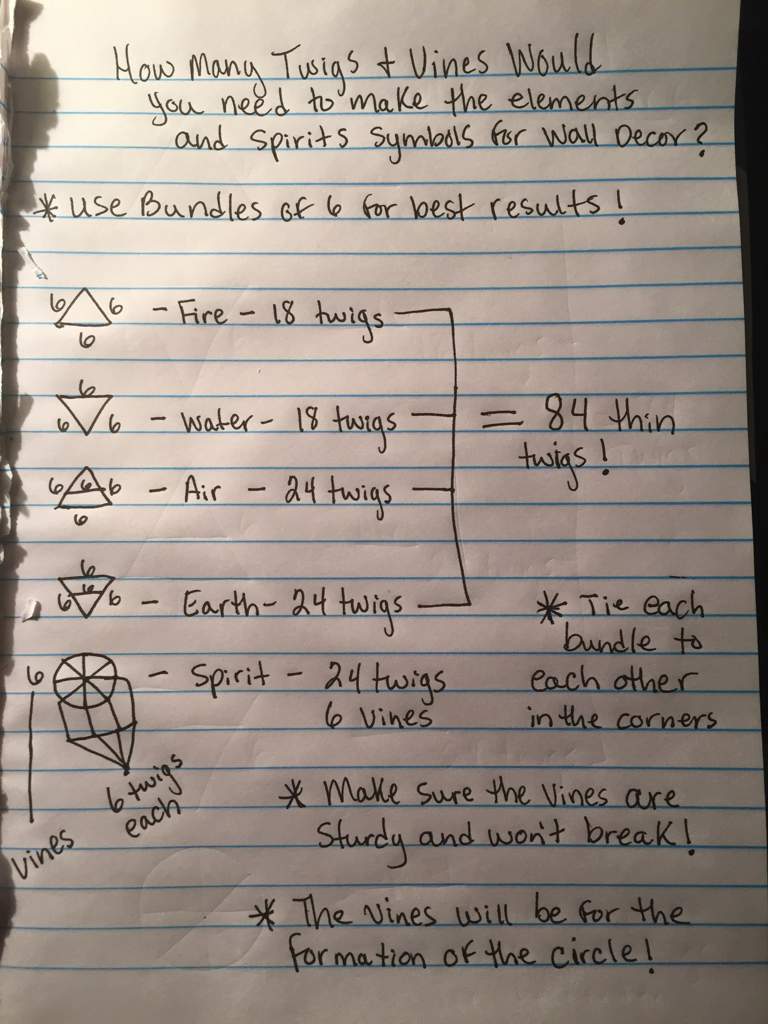 How Many Twigs + Vines Would
you need to make the elements
and Spirits Symbols for Wall Decor?
* Use Bundles of 6 for best results!
6 6 - Fire - 18 twigs
6
6
6 6 - Water - 18 twigs
= 84 thin
twigs!
6 6 6 - Air - 24 twigs
6
6
6 6 6 - Earth - 24 twigs
* Tie each
bundle to
each other
in the corners
6 - Spirit - 24 twigs
6 Vines
6 twigs
each
Vines
* Make sure the Vines are
Sturdy and won't break!
* The Vines will be for the
formation of the circle!